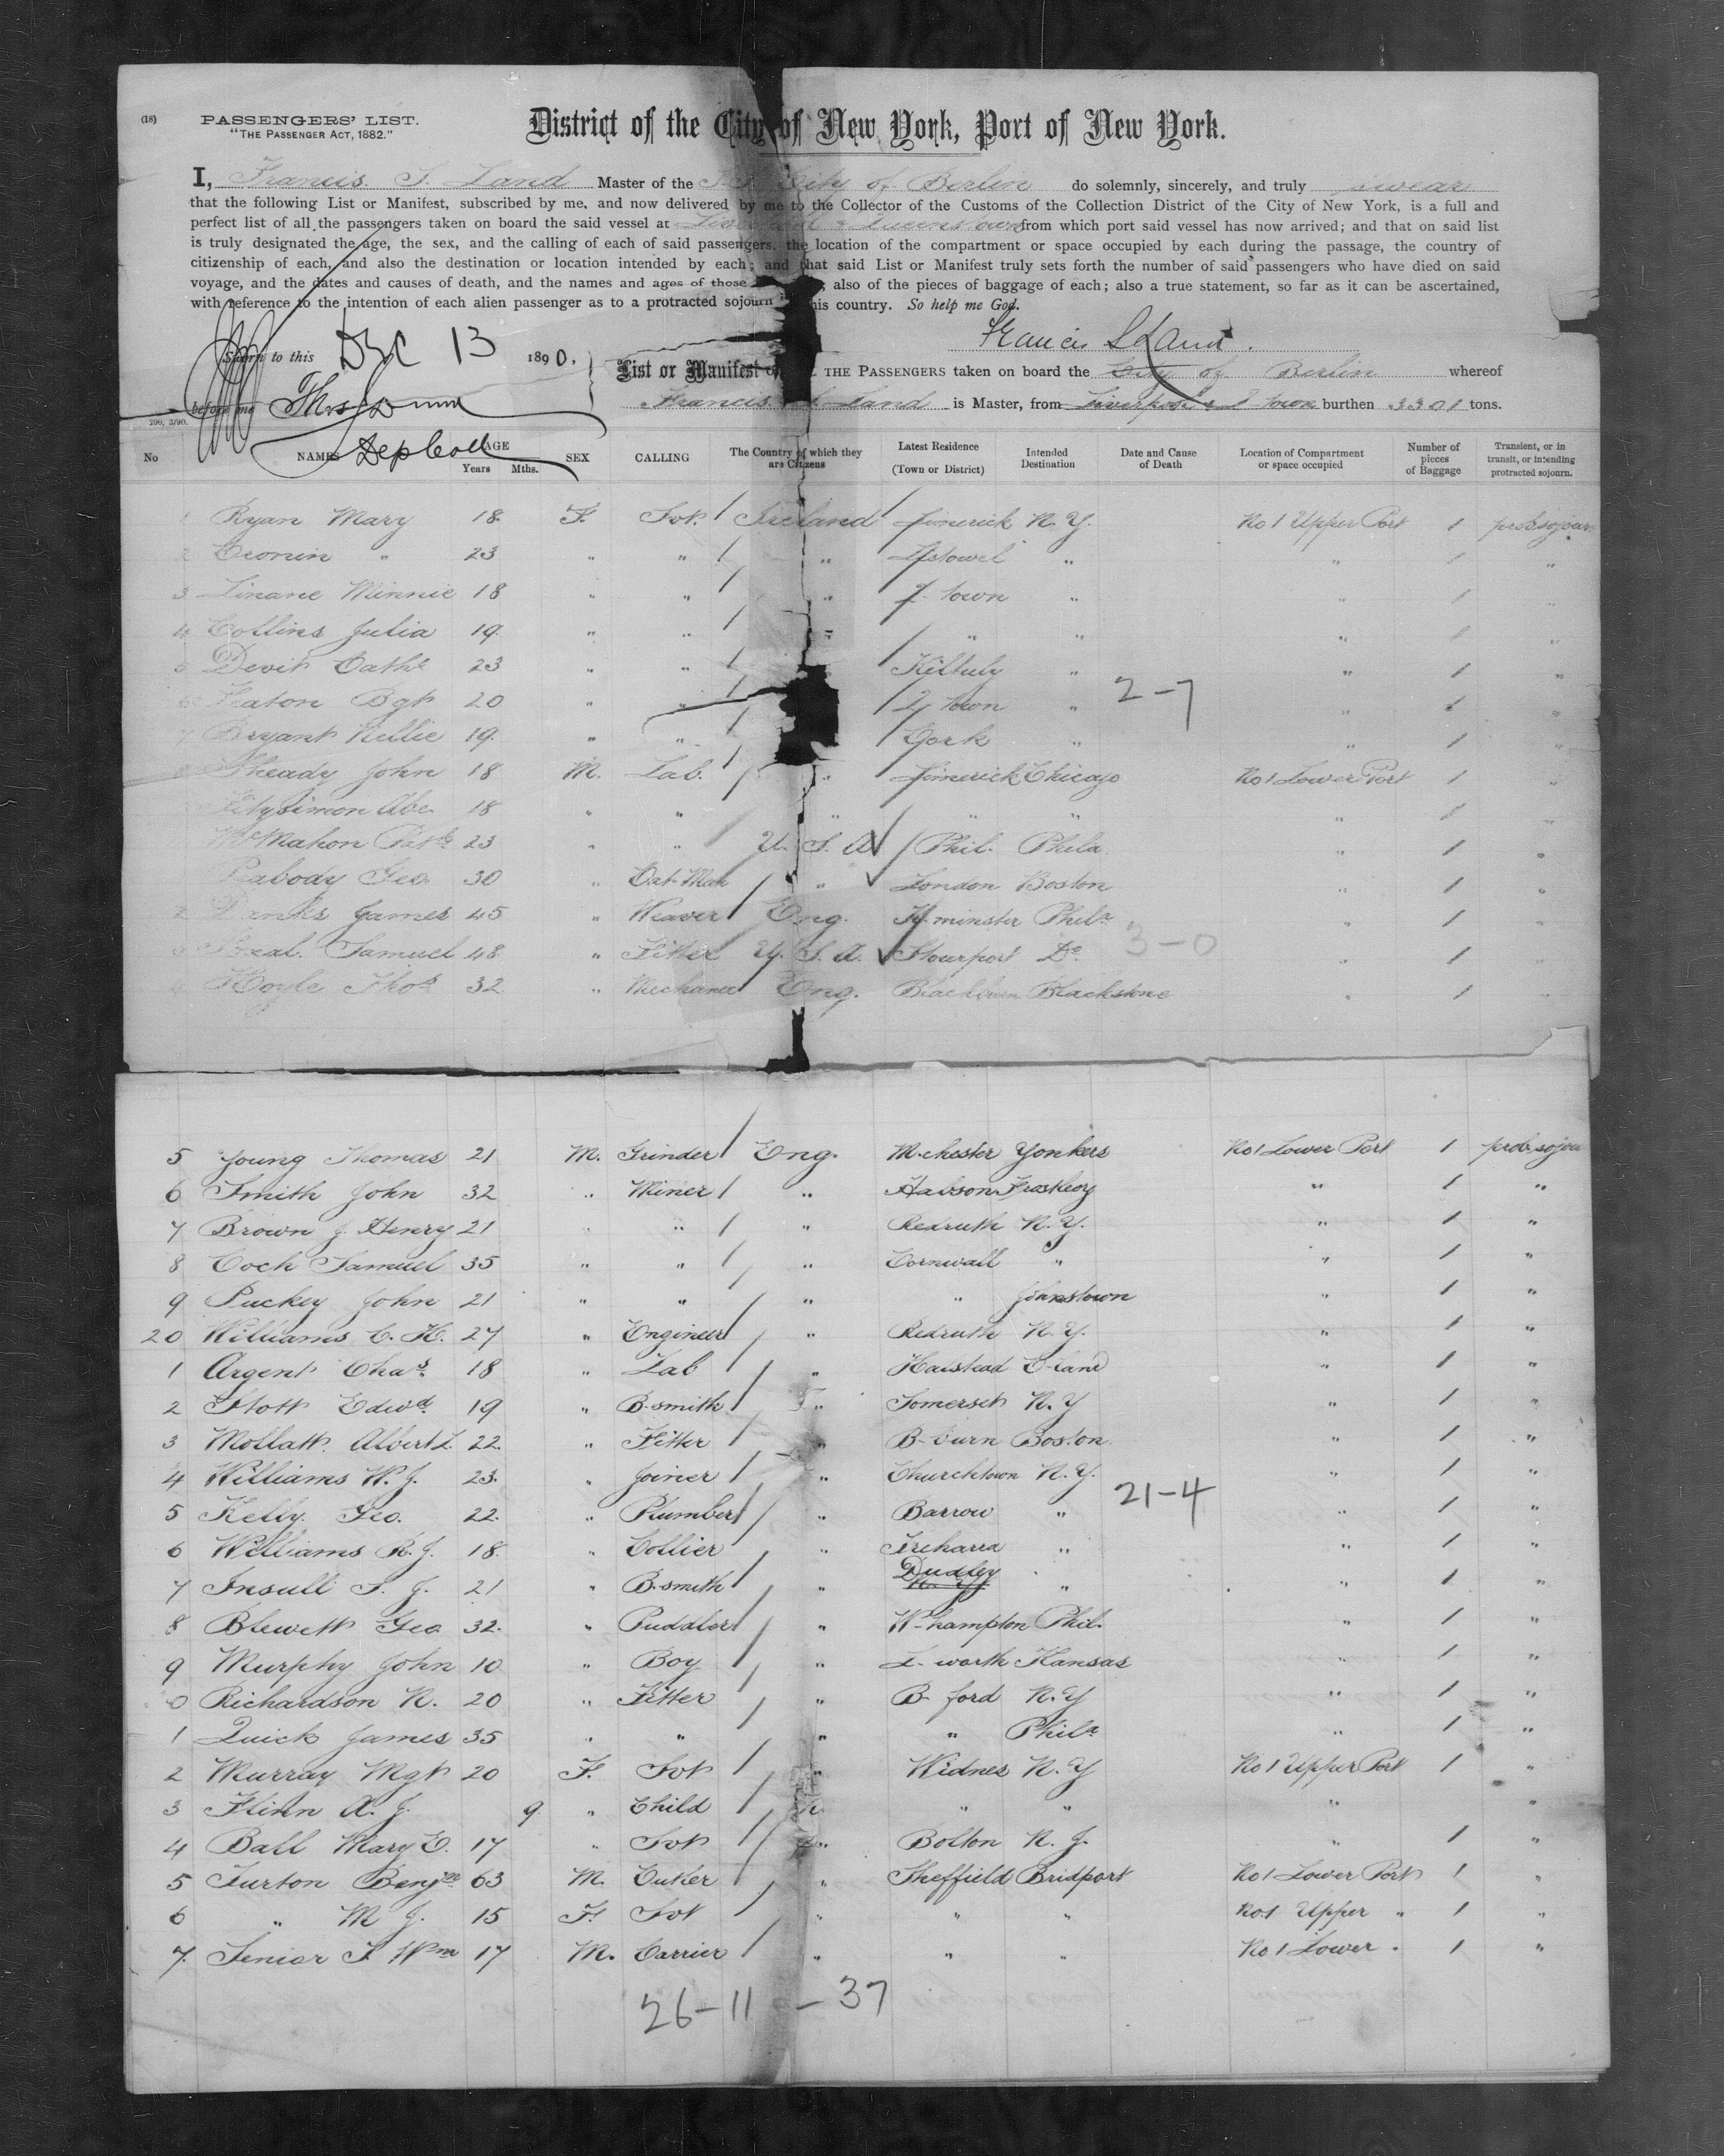 (18)
PASSENGERS' LIST.
"THE PASSENGER ACT, 1882."
District of the City of New York, Port of New York.
I, Francis S. Land Master of the S.S. City of Berlin do solemnly, sincerely, and truly swear
that the following List or Manifest, subscribed by me, and now delivered by me to the Collector of the Customs of the Collection District of the City of New York, is a full and
perfect list of all the passengers taken on board the said vessel at Liverpool & Queenstown from which port said vessel has now arrived; and that on said list
is truly designated the age, the sex, and the calling of each of said passengers, the location of the compartment or space occupied by each during the passage, the country of
citizenship of each, and also the destination or location intended by each; and that said List or Manifest truly sets forth the number of said passengers who have died on said
voyage, and the dates and causes of death, and the names and ages of those ; also of the pieces of baggage of each; also a true statement, so far as it can be ascertained,
with reference to the intention of each alien passenger as to a protracted sojourn this country. So help me God.
Francis S Land.
Sworn to this Dec 13 1890,
before me Thos Dunn
Dep Coll
List or Manifest THE PASSENGERS taken on board the City of Berlin whereof
Francis S. Land is Master, from Liverpool & Q town burthen 3301 tons.
200, 3/90.
No NAMES AGE Years Mths. SEX CALLING The Country of which they are Citizens Latest Residence (Town or District) Intended Destination Date and Cause of Death Location of Compartment or space occupied Number of pieces of Baggage Transient, or in transit, or intending protracted sojourn.
1 Ryan Mary 18 F. Svt. / Ireland Limerick N.Y. No 1 Upper Port 1 prot. sojourn
2 Cronin " 23 " " / " Lstowel " " 1 "
3 Linane Minnie 18 " " / " Q. town " " 1 "
4 Collins Julia 19 " " / " " " " 1 "
5 Devit Cathe 23 " " / " Kiltuly " " 1 "
6 Heaton Bgt 20 " " / Q town " 2-7 " 1 "
7 Bryant Nellie 19 " " / Cork " " 1 "
8 Sheady John 18 M. Lab. / " Limerick Chicago No 1 Lower Port 1 "
Fitzsimon Abe 18 " " " " " " 1 "
McMahon Patk 23 " " / U.S.A / Phil. Phila " 1 "
Peabody Geo 30 " Cat. Man / " London Boston " 1 "
2 Danks James 45 " Weaver / Eng. K. minster Phila " 1 "
3 Samuel 48 " Fitter U.S.A. Stourport Do 3-0 " 1 "
4 Hoyle Thos 32 " Mechanic / Eng. Blackburn Blackstone " 1 "
5 Young Thomas 21 M. Grinder / Eng. M.chester Yonkers No 1 Lower Port 1 prot. sojou
6 Smith John 32 " Miner / " " 1 "
7 Brown J. Henry 21 " " / " Redruth N.Y. " 1 "
8 Cock Samuel 35 " " / " Cornwall " " 1 "
9 Puckey John 21 " " / " " Johnstown " 1 "
20 Williams C. H. 27 " Engineer / " Redruth N.Y. " 1 "
1 Argent Chas 18 " Lab / " Halstead C-land " 1 "
2 Stott Edwd 19 " B.smith / " Somerset N.Y " 1 "
3 Mollatt Albert L. 22 " Fitter / " B-burn Boston " 1 "
4 Williams W. J. 23 " Joiner / " Churchtown N.Y. " 1 "
5 Kelly Geo. 22 " Plumber / " Barrow " 21-4 " 1 "
6 Williams R. J. 18 " Collier / " Treharra " " 1 "
7 Insull T. J. 21 " B.smith / " Dudley " " 1 "
8 Blewett Geo 32 " Puddler / " W-hampton Phil. " 1 "
9 Murphy John 10 " Boy / " L. worth Kansas " 1 "
0 Richardson N. 20 " Fitter / " B- ford N.Y " 1 "
1 Quick James 35 " " / " " Phila " 1 "
2 Murray Mgt 20 F. Svt / " Widnes N.Y No 1 Upper Port 1 "
3 Flinn A. J. 9 " Child / " " " " "
4 Ball Mary E. 17 " Svt / " Bolton N. J. " 1 "
5 Turton Benjn 63 M. Cutler / " Sheffield Bridport No 1 Lower Port 1 "
6 " M J. 15 F. Svt / " " " No 1 Upper " 1 "
7 Senior T Wm 17 M. Carrier / " " " No 1 Lower " 1 "
26-11 - 37